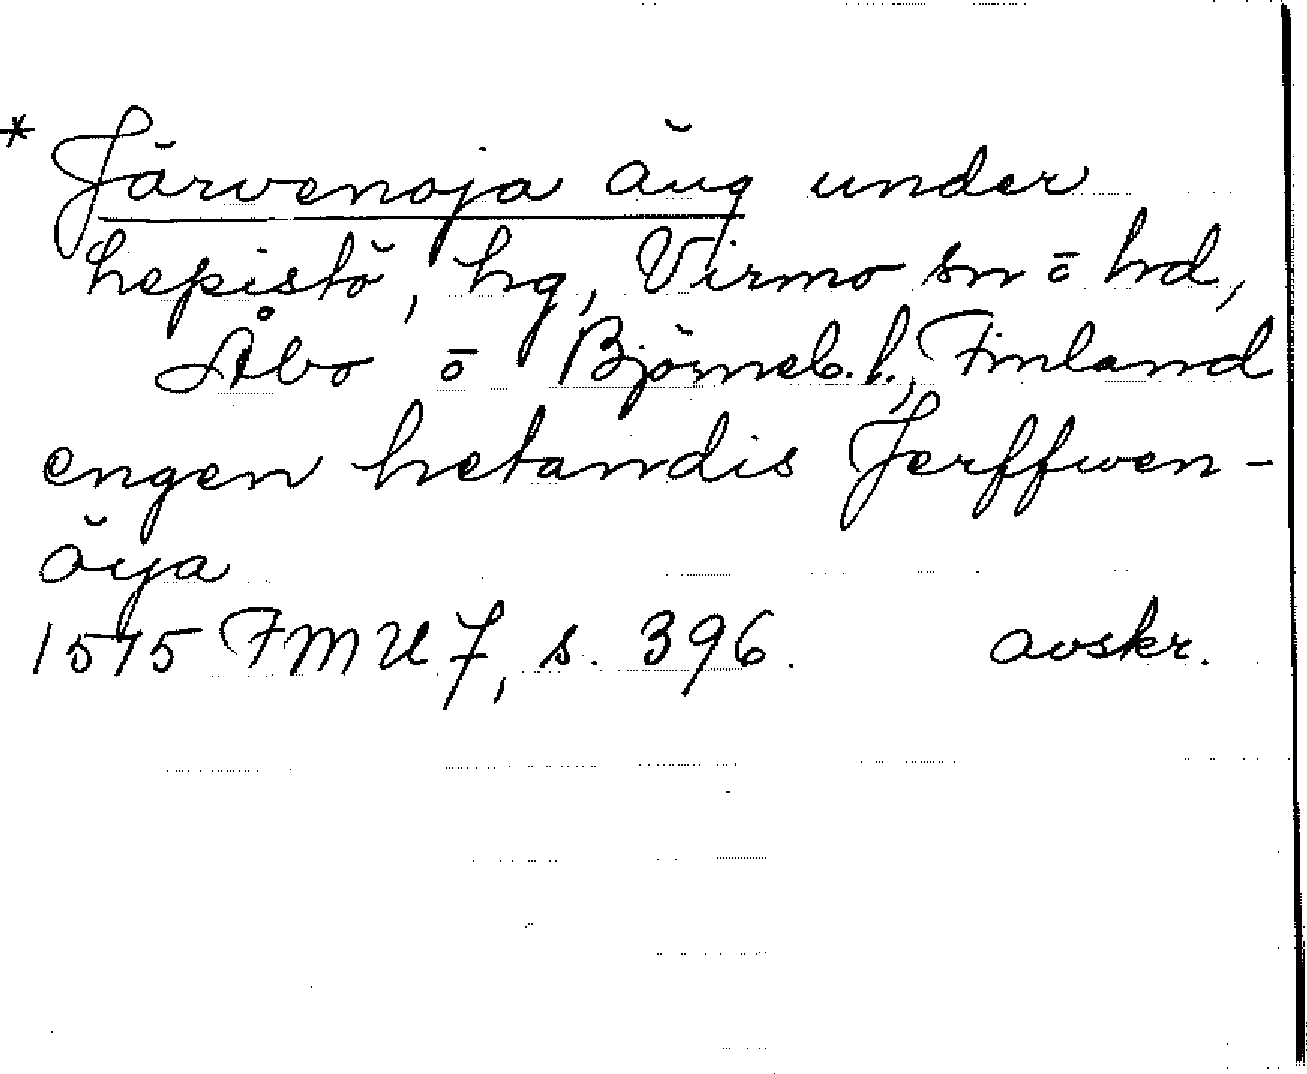 * Järvenoja äng under
hepistö, hg, Virmo sn ō hd,
Åbo ō Björneb. l., Finland
engen hetandis Jerffwen-
öya
1575 FMU 7, s. 396. avskr.